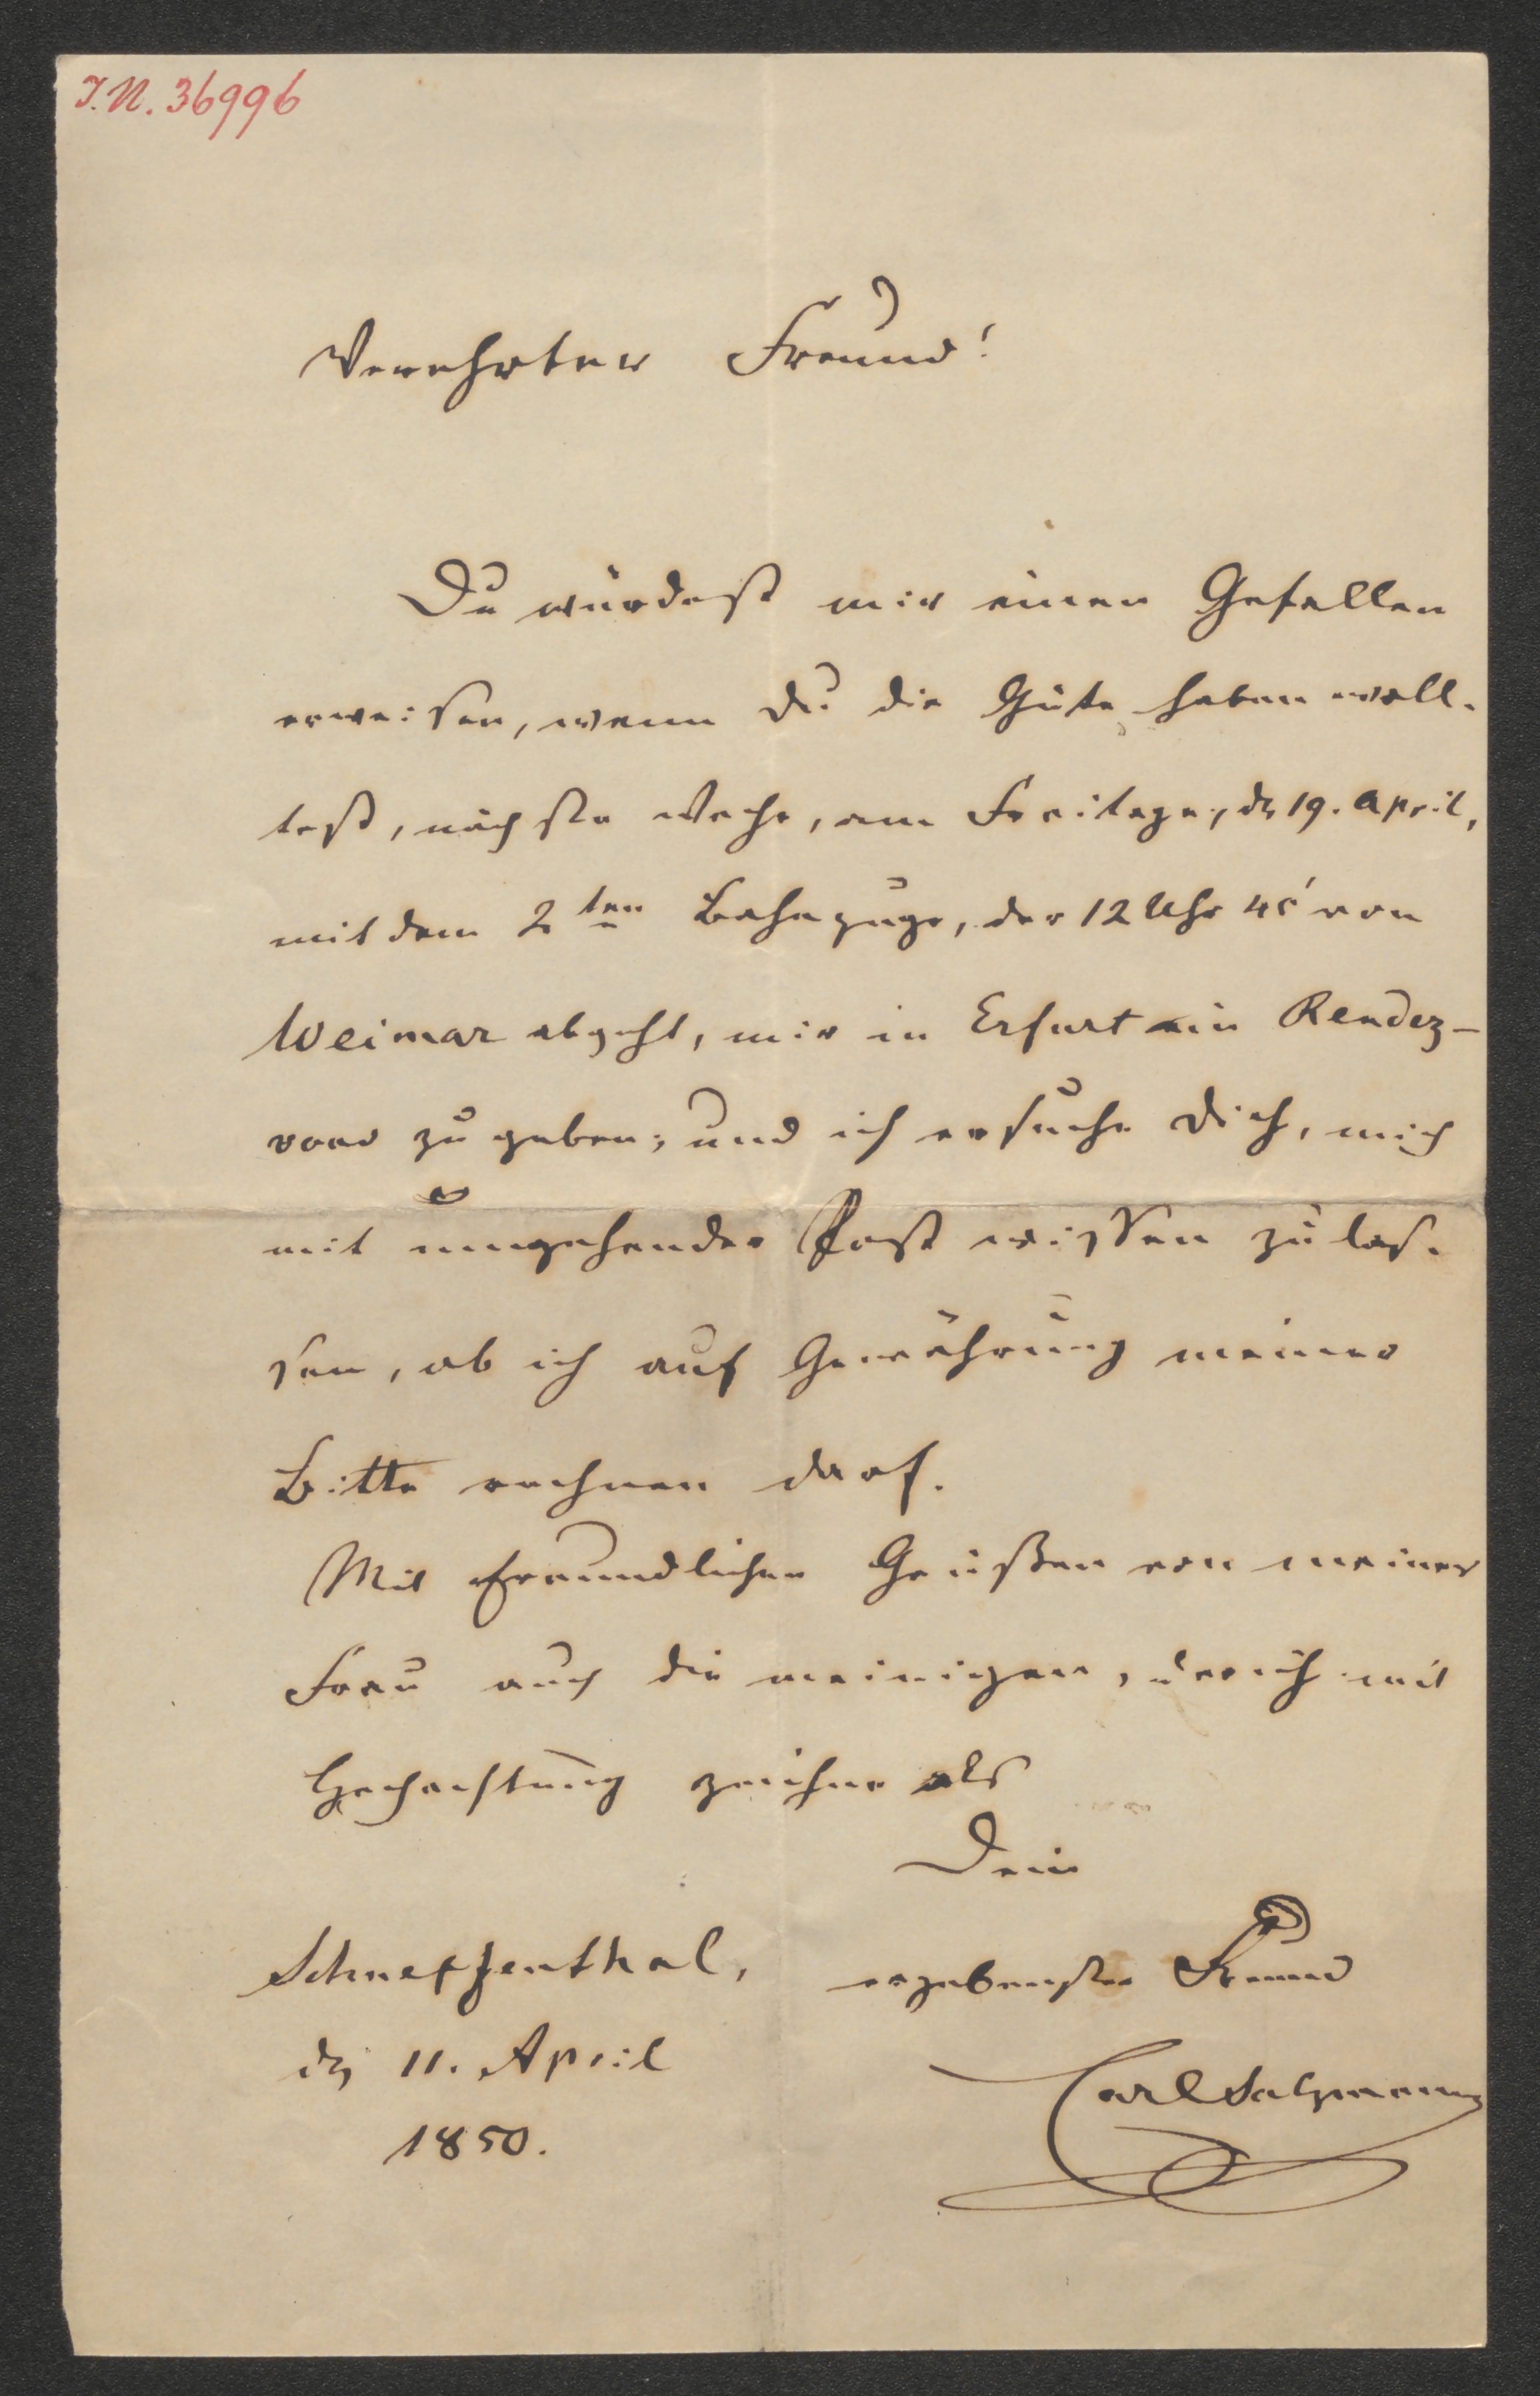 I.N. 36996
Verehrter Freund!
Du würdest mir einen Gefallen
erweisen, wenn Du die Güte haben woll-
test, nächste Woche, am Freitage, d. 19. April,
mit dem 2ten Bahnzuge, der 12 Uhr 45' von
Weimar abgeht, mir in Erfurt ein Rendez-
vous zu geben; und ich ersuche Dich, mich
mit umgehender Post wissen zu las-
sen, ob ich auf Gewährung meiner
Bitte rechnen darf.
Mit freundlichen Grüßen von meiner
Frau auch die meinigen, der ich mit
Hochachtung zeichne als
Dein
Schnepfenthal, ergebenster Freund
d. 11. April Carl Salzmann
1850.